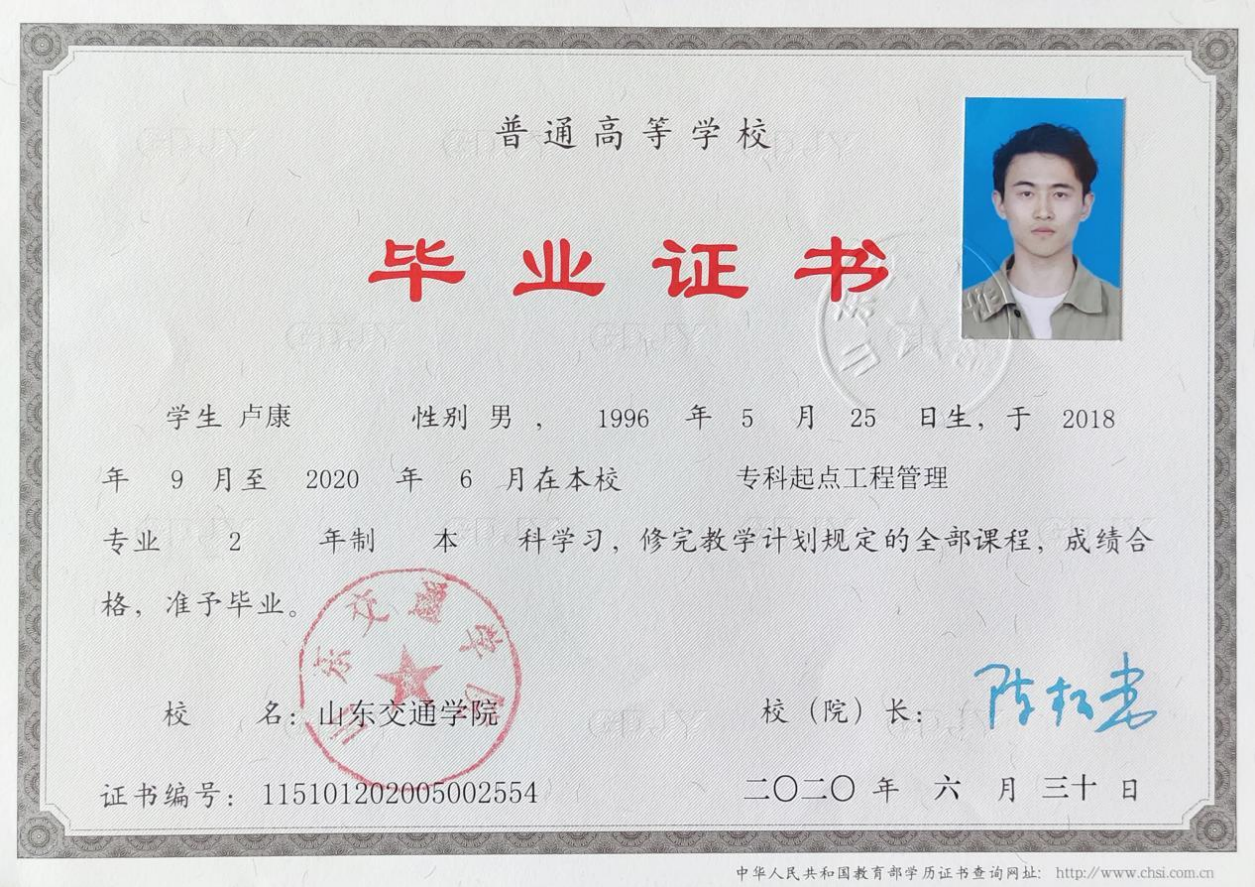 普通高等学校
毕业证书
学生 卢康 性别 男 , 1996 年 5 月 25 日生, 于 2018
年 9 月至 2020 年 6 月在本校 专科起点工程管理
专业 2 年制 本 科学习, 修完教学计划规定的全部课程, 成绩合
格, 准予毕业。
山东交通学院
校 名: 山东交通学院 校（院）长: 
证书编号: 115101202005002554 二〇二〇 年 六 月 三十 日
中华人民共和国教育部学历证书查询网址: http://www.chsi.com.cn